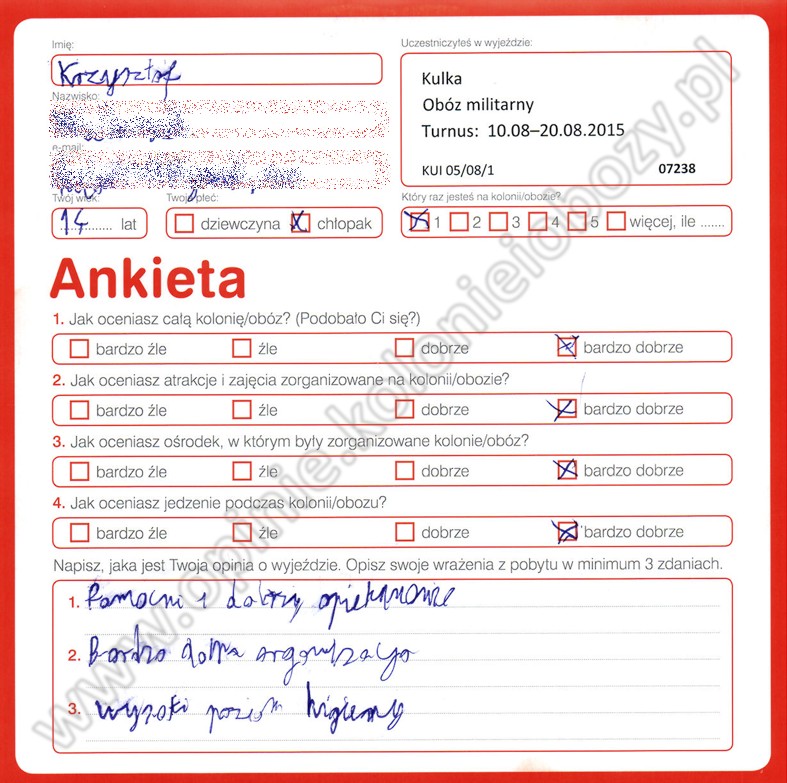 Imię:
Krzysztof
Nazwisko:
e-mail:
Twój wiek:
14 lat
Twoja płeć:
dziewczyna chłopak
Uczestniczyłeś w wyjeździe:
Kulka
Obóz militarny
Turnus: 10.08–20.08.2015
KUI 05/08/1 07238
Który raz jesteś na kolonii/obozie?
1 2 3 4 5 więcej, ile .......
Ankieta
1. Jak oceniasz całą kolonię/obóz? (Podobało Ci się?)
bardzo źle źle dobrze bardzo dobrze
2. Jak oceniasz atrakcje i zajęcia zorganizowane na kolonii/obozie?
bardzo źle źle dobrze bardzo dobrze
3. Jak oceniasz ośrodek, w którym były zorganizowane kolonie/obóz?
bardzo źle źle dobrze bardzo dobrze
4. Jak oceniasz jedzenie podczas kolonii/obozu?
bardzo źle źle dobrze bardzo dobrze
Napisz, jaka jest Twoja opinia o wyjeździe. Opisz swoje wrażenia z pobytu w minimum 3 zdaniach.
1. Pomocni i dobrzy opiekunowie
2. Bardzo dobra organizacja
3. wysoki poziom higieny
www.opinie.kolonieiobozy.pl